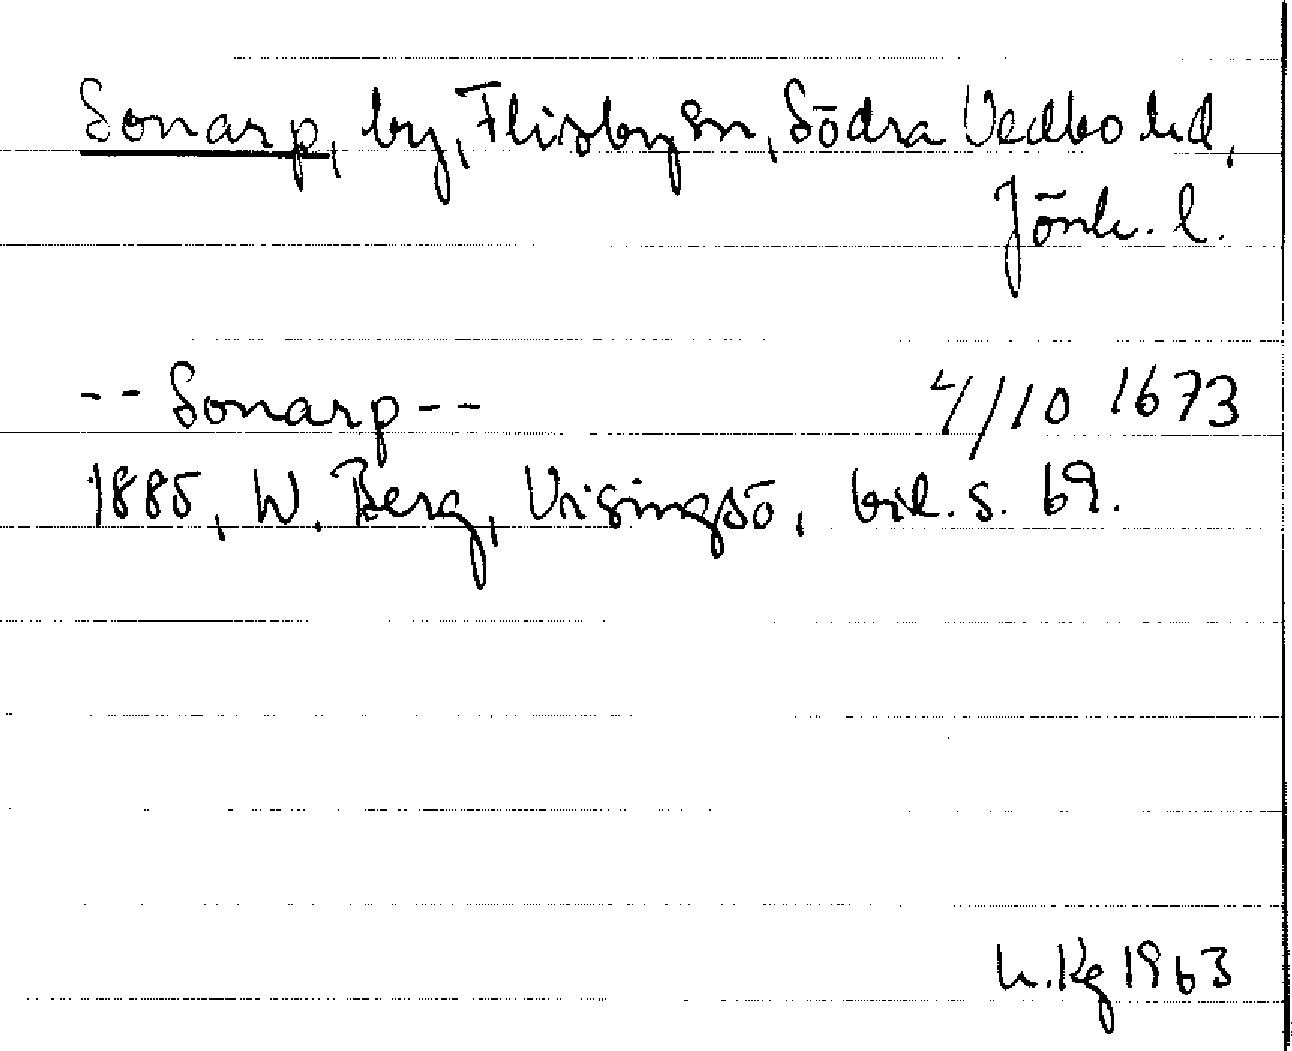 Sonarp, by, Flisby sn, Södra Vedbo hd,
Jönk. l.
-- Sonarp -- 4/10 1673
1885, W. Berg, Visingsö, bil. s. 69.
h.Kg 1963